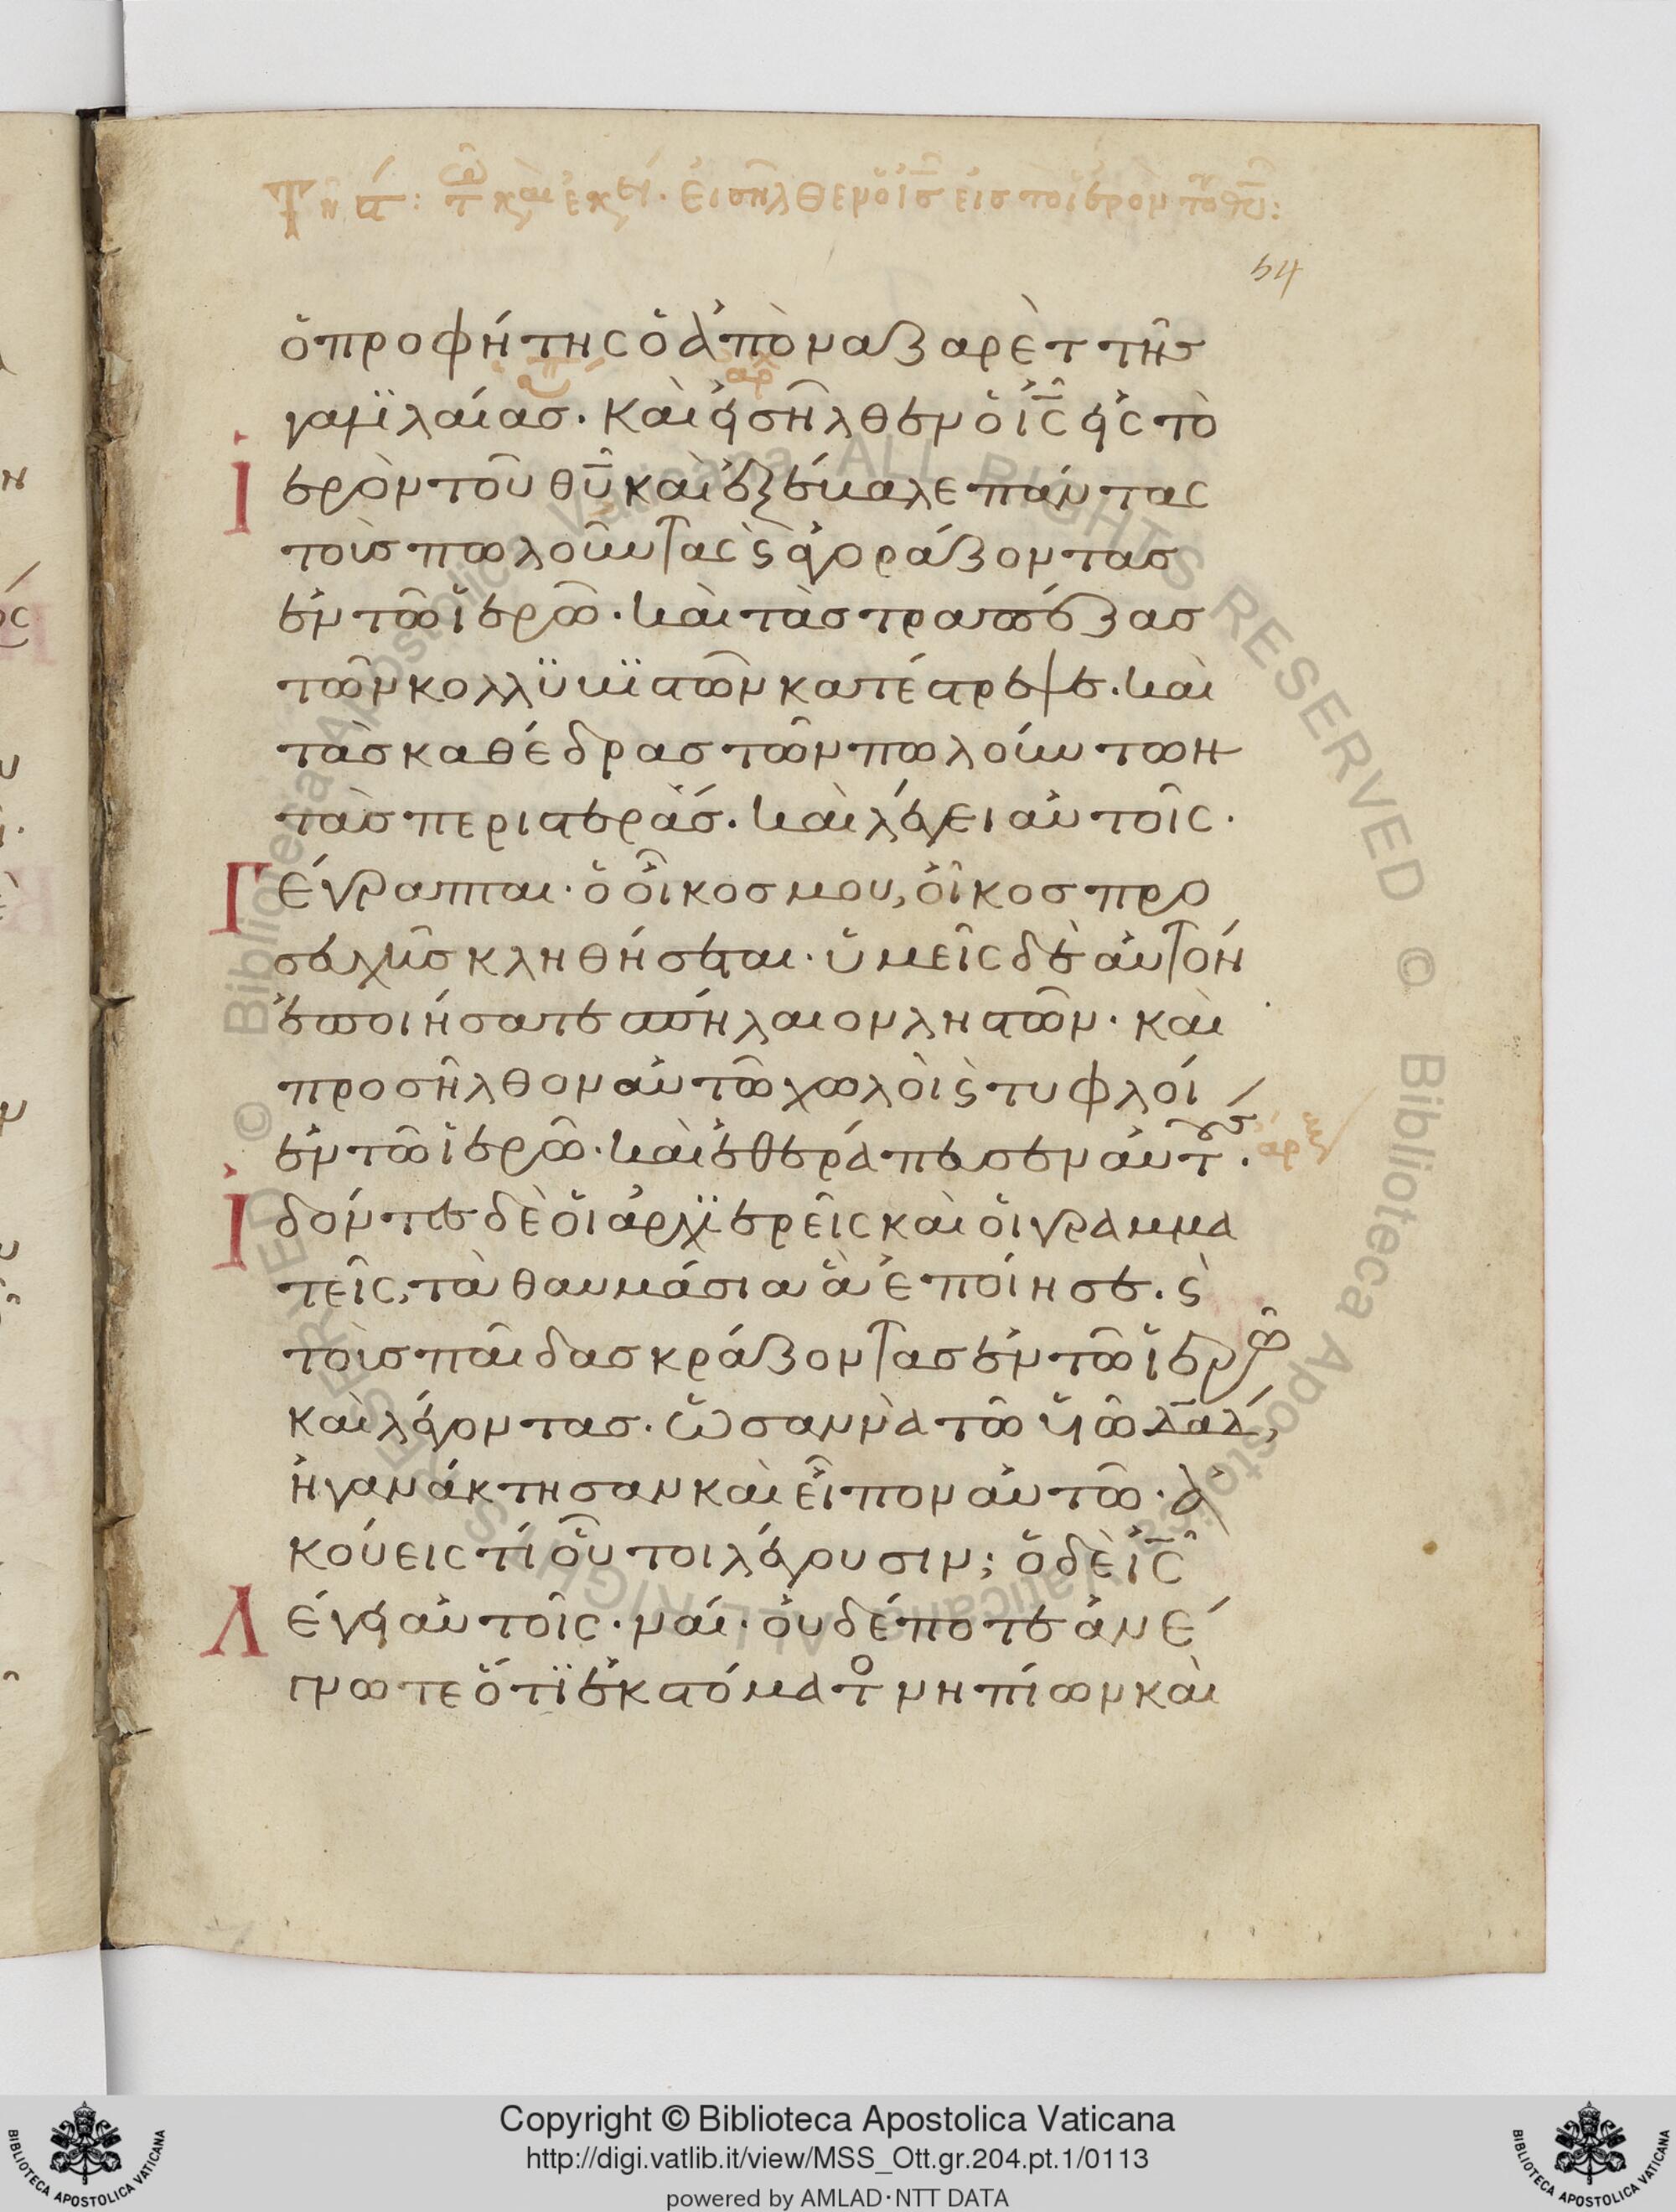 εἰσῆλθεν ὁ ις εἰς τὸ ἱερὸν τοῦ θυ:
54
ὁ προφήτης ὁ ἀπὸ ναζαρὲτ τῆς
γαλϊλαίας. Καὶ εἰσῆλθεν ὁ ις εἰς τὸ
ἱερὸν τοῦ θυ καὶ ἐξέβαλε πάντας
τοὺς πωλοῦντας ϛ ἀγοράζοντας
ἐν τῶ ἱερῶ. καὶ τὰς τραπέζας
τῶν κολλϋβϊστῶν κατέστρεψε. καὶ
τὰς καθέδρας τῶν πωλούντων
τὰς περιστεράς. καὶ λέγει αὐτοῖς.
Γέγραπται. ὁ οἶκος μου, οἶκος προ
σευχῆς κληθήσεται. ὑμεῖς δὲ αὐτὸν
ἐποιήσατε σπήλαιον ληστῶν. καὶ
προσῆλθον αὐτῶ χωλοὶ ϛ τυφλοί
ἐν τῶ ἱερῶ. καὶ ἐθεράπευσεν αὐτούς.
ἰδόντες δὲ οἱ ἀρχϊερεῖς καὶ οἱ γραμμα
τεῖς, τὰ θαυμάσια ἃ ἐποίησε. ϛ
τοὺς παῖδας κράζοντας ἐν τῶ ἱερῶ
καὶ λέγοντας. ὡσαννὰ τῶ υἱῶ δαδ,
ἠγανάκτησαν καὶ εἶπον αὐτῶ. ἀ
κούεις τί οὗτοι λέγουσιν; ὁ δὲ ις
Λέγει αὐτοῖς. ναί. οὐδέποτε ἀνέ
γνωτε ὅτϊ ἐκ στόματο νηπίων καὶ
© Biblioteca Apostolica Vaticana ALL RIGHTS RESERVED © Biblioteca Apostolica Vaticana ALL RIGHTS RESERVED
Copyright © Biblioteca Apostolica Vaticana
http://digi.vatlib.it/view/MSS_Ott.gr.204.pt.1/0113
powered by AMLAD·NTT DATA
BIBLIOTECA APOSTOLICA VATICANA
BIBLIOTECA APOSTOLICA VATICANA